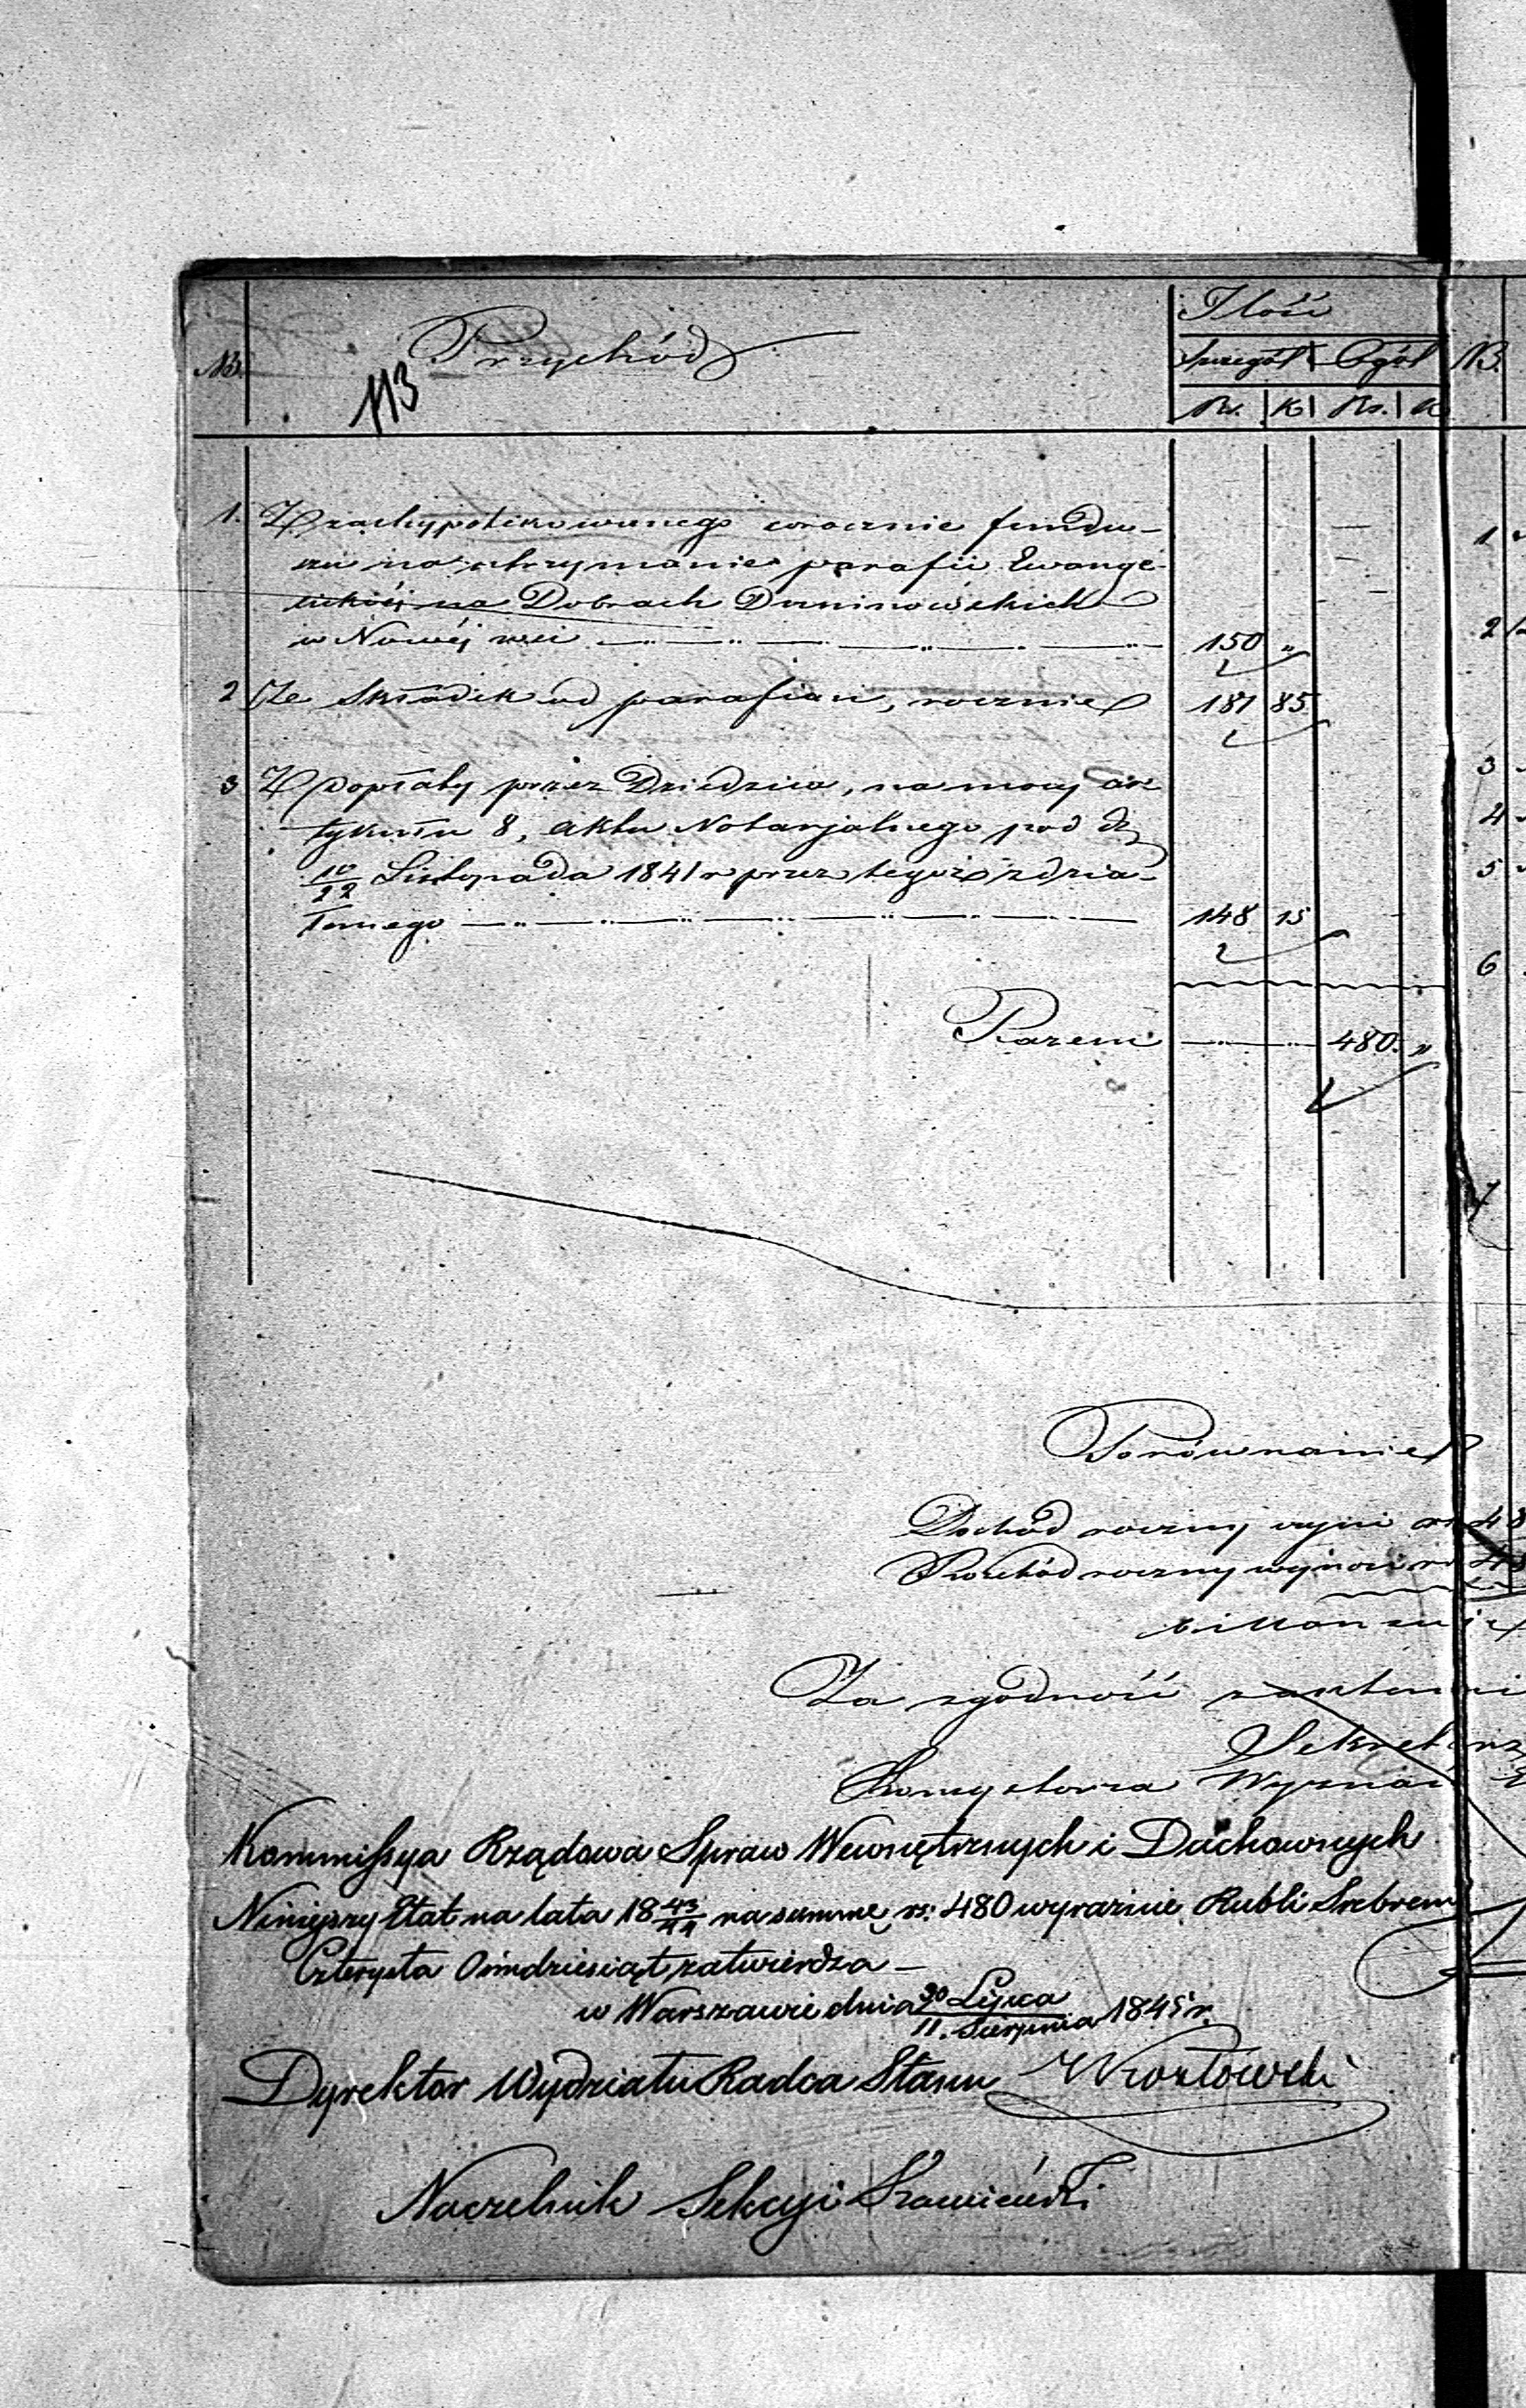 NB.
Przychód
113
Ilość
Szczegół Ogół
Rs. K Rs. K
NB.
1. Z zachypotekowanego wiecznie fundu-
szu na utrzymanie parafii Ewange-
lickiéj na Dobrach Duninowskich
w Nowéj wsi 150 "
2 Ze Składek od parafian, rocznie 181 85
3 Z dopłaty przez Dziedzica, na mocy ar-
tykułu 8, aktu Notarjalnego pod d.
10/22 Listopada 1841 r przez tegoż zdzia-
łanego 148 15
Razem 480. "
1
2
3
4
5
6
7
Porównanie
Dochód roczny wyno rs 48
Rozchód roczny wynosi rs 48
bilansuje
Za zgodność
Sekretarz
Konsystorza Wyznań
Kommissya Rządowa Spraw Wewnętrznych i Duchownych
Niniejszy Etat na lata 18 43/44 na summę rs: 480 wyraźnie Rubli Srebrem
Czterysta Ośmdziesiąt zatwierdza –
w Warszawie dnia 30 Lipca/11. Sierpnia 1845 r.
Dyrektor Wydziału Radca Stanu Kozłowski
Naczelnik Sekcyi